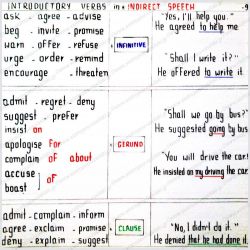 INTRODUCTORY VERBS in a INDIRECT SPEECH - 9
ask - agree - advise
beg - invite - promise
warn - offer - refuse
urge - order - remind
encourage - threaten
INFINITIVE
"Yes, I'll help you."
He agreed to help me
"Shall I write it?"
He offered to write it
admit - regret - deny
suggest - prefer
insist on
apologise For
complain of about
accuse
boast
of
GERUND
"Shall we go by bus?"
He suggested going by bus
"You will drive the car!
He insisted on my driving the car
admit - complain - inform
agree - exclaim - promise
deny - explain - suggest
CLAUSE
"No, I didn't do it."
He denied that he had done it